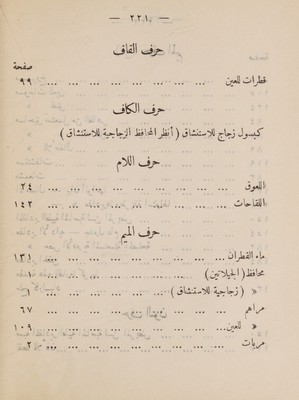 — ٢٢١ —
حرف القاف
صفحة
قطرات للعين ... ... ... ... ... ... ... ٩٩
حرف الكاف
كبسول زجاج للاستنشاق ( أنظر المحافظ الزجاجية للاستنشاق )
حرف اللام
اللعوق ... ... ... ... ... ... ... ... ٢٤
اللقاحات ... ... ... ... ... ... ... ١٤٢
حرف الميم
ماء القطران ... ... ... ... ... ... ... ١٣١
محافظ ( الجيلاتين ) ... ... ... ... ... ... ١
« ( زجاجية للاستنشاق ) ... ... ... ... ١
مراهم ... ... ... ... ... ... ... ... ٦٧
« للعين ... ... ... ... ... ... ... ١٠٩
مربات ... ... ... ... ... ... ... ... ٢